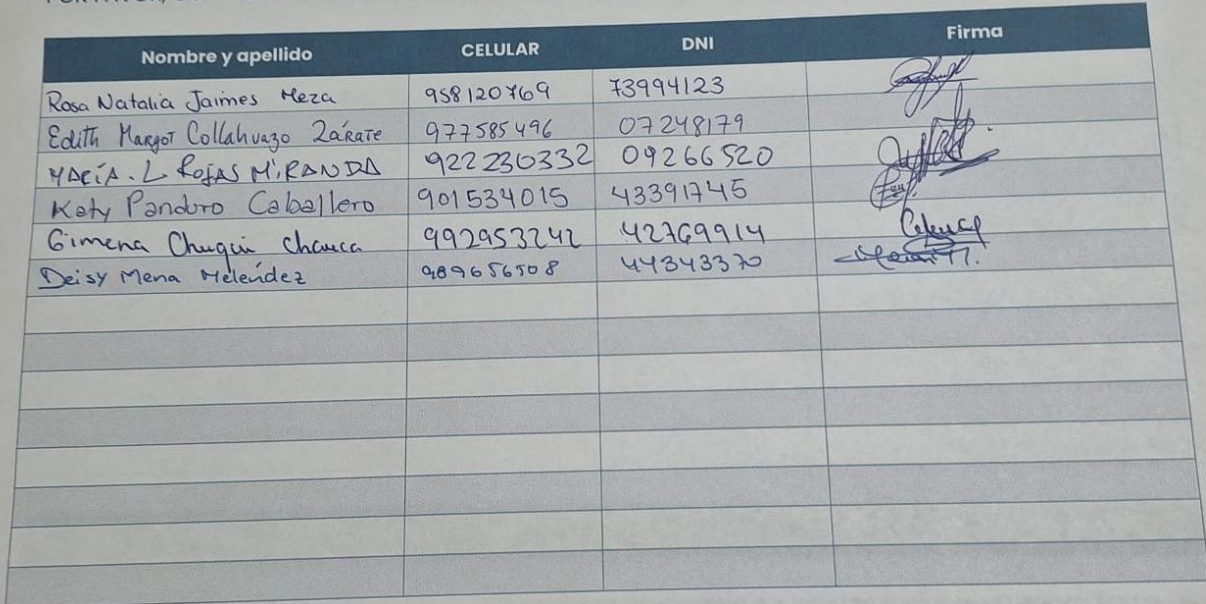 Nombre y apellido CELULAR DNI Firma
Rosa Natalia Jaimes Meza 958120769 73994123
Edith Margot Collahuazo Zárate 977585496 07248179
MARÍA. L ROJAS MIRANDA 922230332 09266520
Katy Panduro Caballero 901534015 43391745
Gimena Chuqui Chauca 992953242 42769914
Deisy Mena Meléndez 989656508 44343370